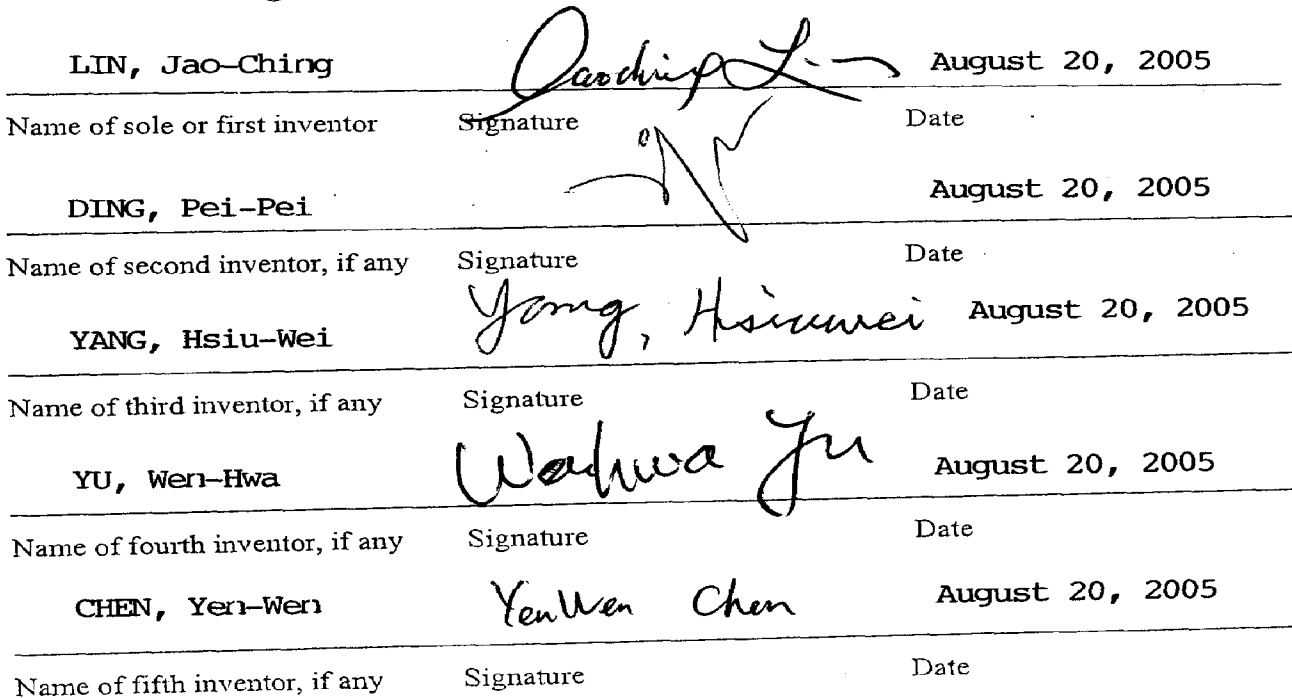 LIN, Jao-Ching Jaoching Lin August 20, 2005
Name of sole or first inventor Signature Date
DING, Pei-Pei August 20, 2005
Name of second inventor, if any Signature Date
YANG, Hsiu-Wei Yang, Hsiuwei August 20, 2005
Name of third inventor, if any Signature Date
YU, Wen-Hwa Wenhwa Yu August 20, 2005
Name of fourth inventor, if any Signature Date
CHEN, Yen-Wen YenWen Chen August 20, 2005
Name of fifth inventor, if any Signature Date